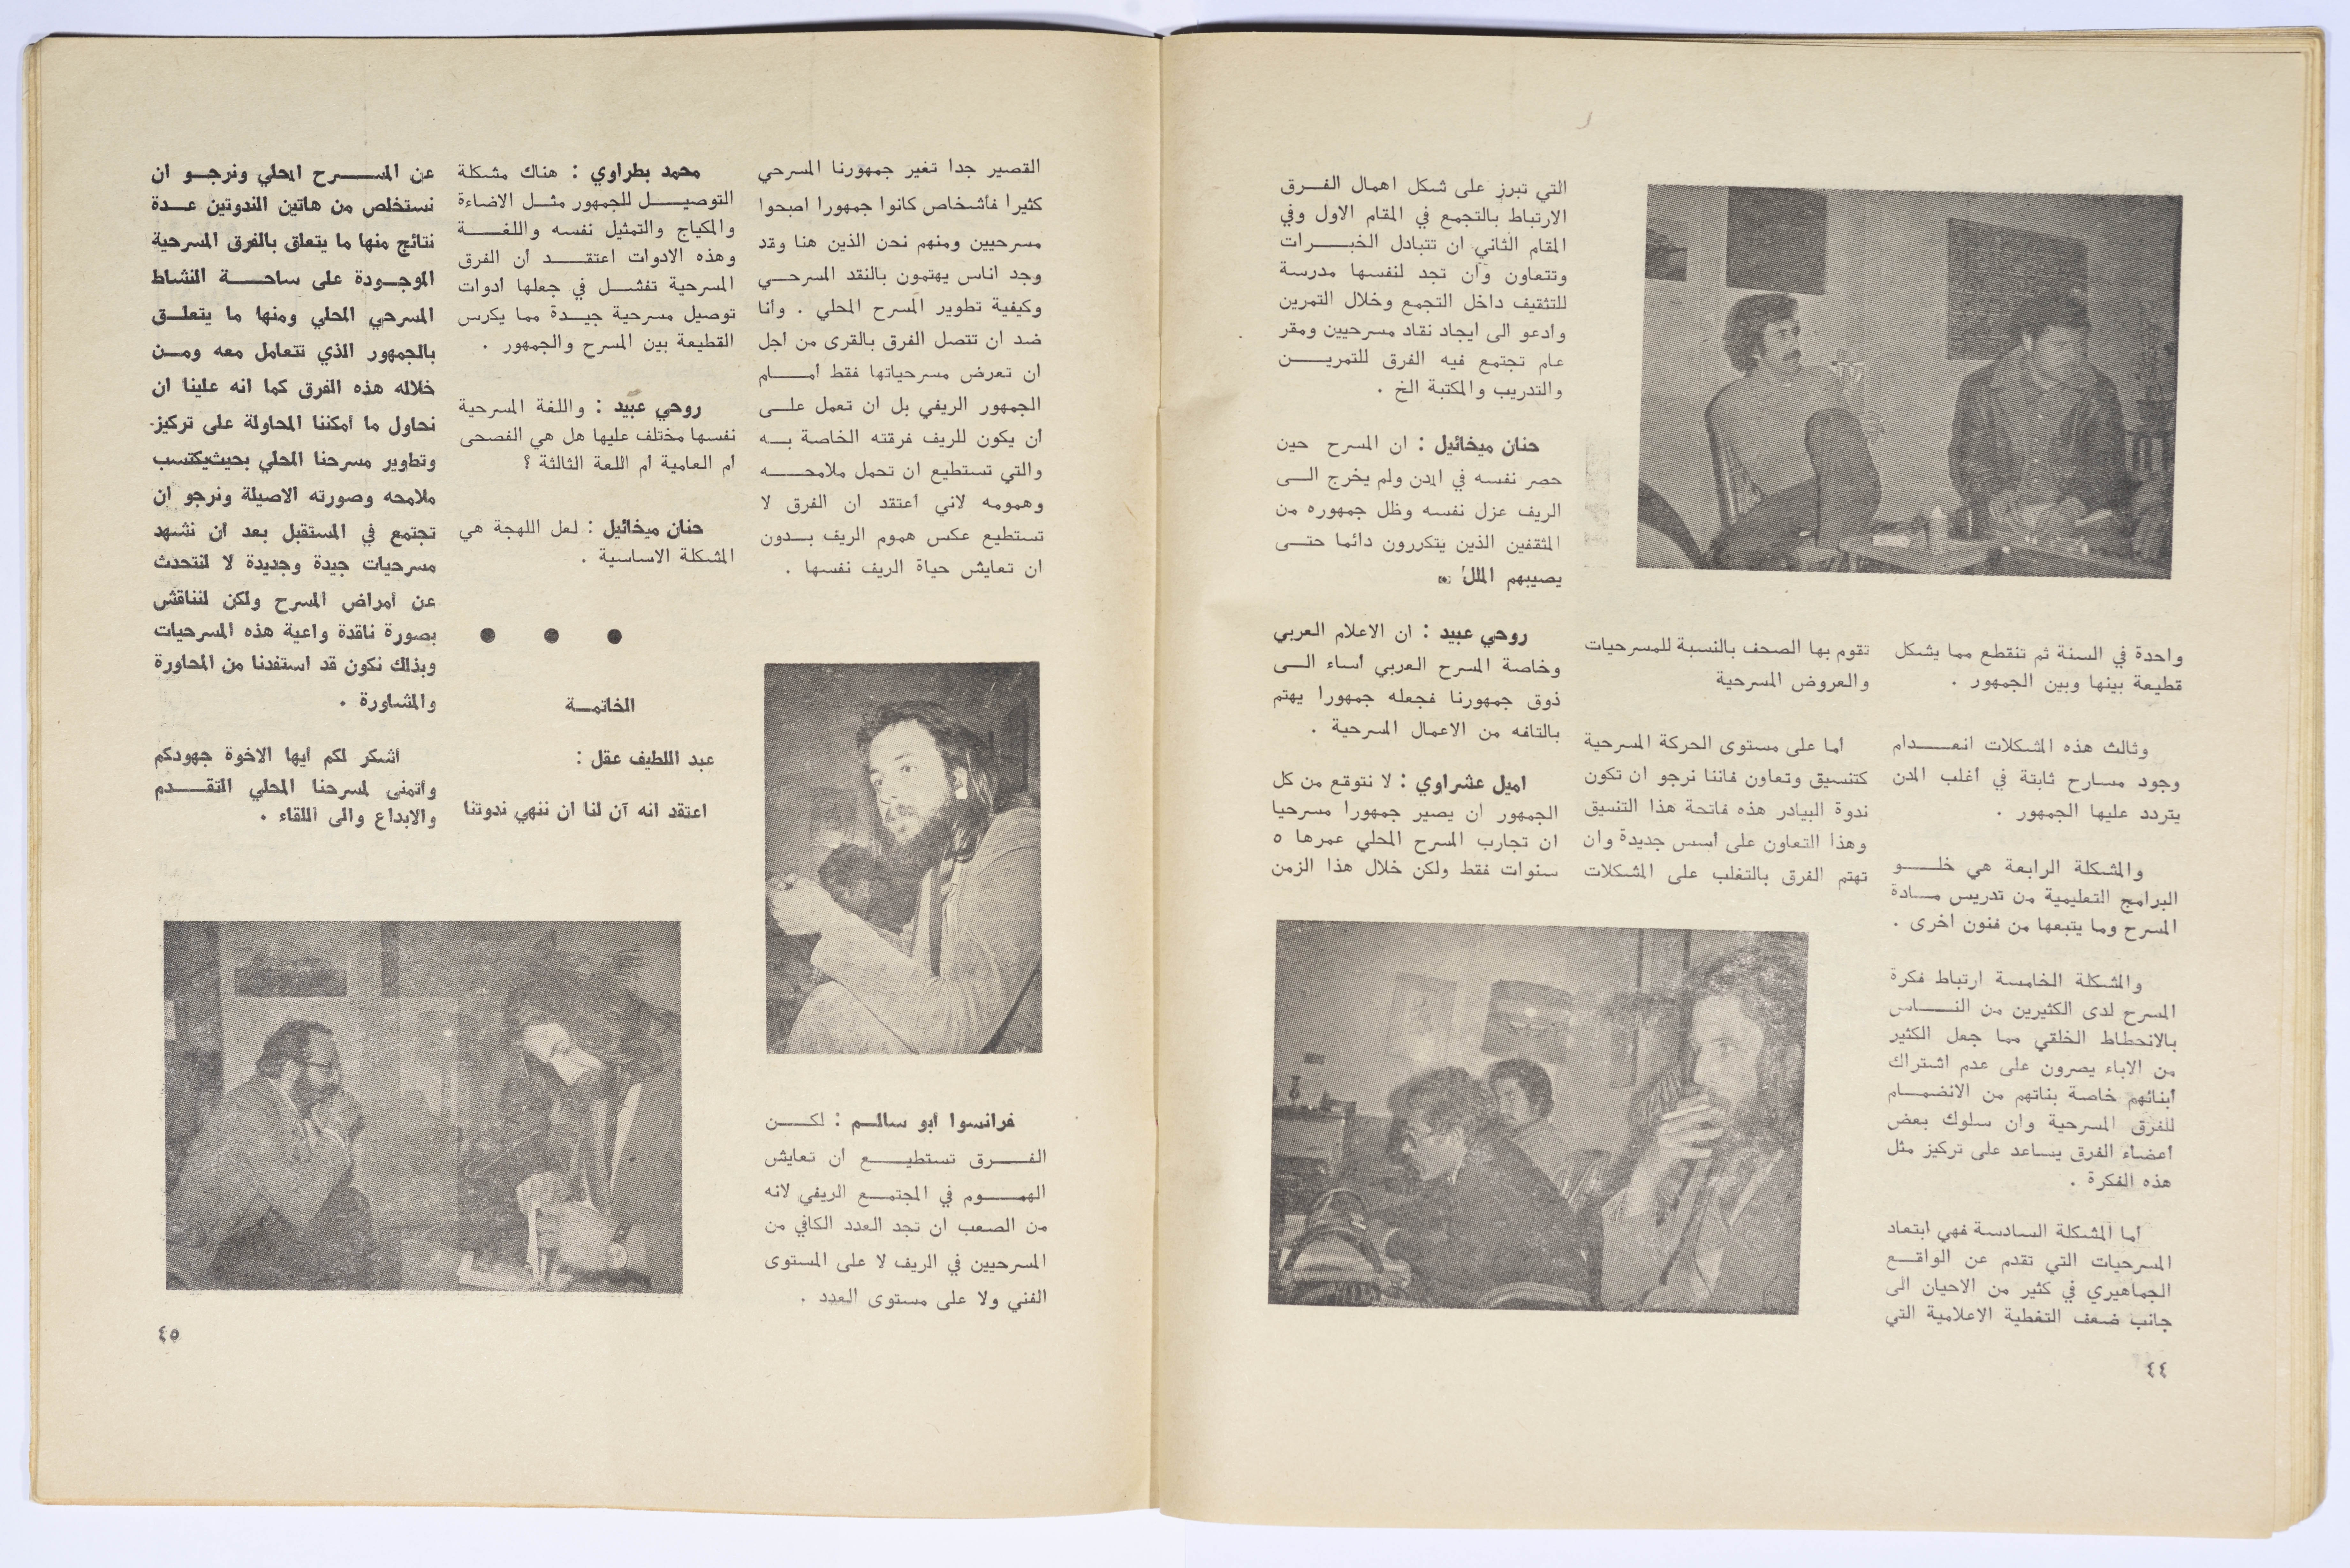 واحدة في السنة ثم تنقطع مما يشكل
قطيعة بينها وبين الجمهور .
وثالث هذه المشكلات انعـــدام
وجود مسارح ثابتة في أغلب المدن
يتردد عليها الجمهور .
والمشكلة الرابعة هي خلـــو
البرامج التعليمية من تدريس مـــادة
المسرح وما يتبعها من فنون اخرى .
والمشكلة الخامسة ارتباط فكرة
المسرح لدى الكثيرين من النـــاس
بالانحطاط الخلقي مما جعل الكثير
من الاباء يصرون على عدم اشتراك
أبنائهم خاصة بناتهم من الانضمـــام
للفرق المسرحية وان سلوك بعض
أعضاء الفرق يساعد على تركيز مثل
هذه الفكرة .
أما المشكلة السادسة فهي ابتعاد
المسرحيات التي تقدم عن الواقـــع
الجماهيري في كثير من الاحيان الى
جانب ضعف التغطية الاعلامية التي
تقوم بها الصحف بالنسبة للمسرحيات
والعروض المسرحية
أما على مستوى الحركة المسرحية
كتنسيق وتعاون فاننا نرجو ان تكون
ندوة البيادر هذه فاتحة هذا التنسيق
وهذا التعاون على أسس جديدة وان
تهتم الفرق بالتغلب على المشكلات
التي تبرز على شكل اهمال الفـــرق
الارتباط بالتجمع في المقام الاول وفي
المقام الثاني ان تتبادل الخبـــرات
وتتعاون وأن تجد لنفسها مدرسة
للتثقيف داخل التجمع وخلال التمرين
وادعو الى ايجاد نقاد مسرحيين ومقر
عام تجتمع فيه الفرق للتمريـــن
والتدريب والمكتبة الخ .
حنان ميخائيل : ان المسرح حين
حصر نفسه في المدن ولم يخرج الـــى
الريف عزل نفسه وظل جمهوره من
المثقفين الذين يتكررون دائما حتـــى
يصيبهم الملل
روحي عبيد : ان الاعلام العربي
وخاصة المسرح العربي أساء الـــى
ذوق جمهورنا فجعله جمهورا يهتم
بالتافه من الاعمال المسرحية .
اميل عشراوي : لا نتوقع من كل
الجمهور ان يصير جمهورا مسرحيا
ان تجارب المسرح المحلي عمرها ٥
سنوات فقط ولكن خلال هذا الزمن
٤٤
القصير جدا تغير جمهورنا المسرحي
كثيرا فأشخاص كانوا جمهورا اصبحوا
مسرحيين ومنهم نحن الذين هنا وقد
وجد اناس يهتمون بالنقد المسرحـــي
وكيفية تطوير المسرح المحلي . وانا
ضد ان تتصل الفرق بالقرى من اجل
ان تعرض مسرحياتها فقط أمـــام
الجمهور الريفي بل ان تعمل علـــى
أن يكون للريف فرقته الخاصة بـــه
والتي تستطيع ان تحمل ملامحـــه
وهمومه لاني أعتقد ان الفرق لا
تستطيع عكس هموم الريف بـــدون
ان تعايش حياة الريف نفسها .
فرانسوا أبو سالـــم : لكـــن
الفـــرق تستطيـــع ان تعايش
الهمـــوم في المجتمـــع الريفي لانه
من الصعب ان تجد العدد الكافي من
المسرحيين في الريف لا على المستوى
الفني ولا على مستوى العدد .
محمد بطراوي : هناك مشكلة
التوصيـــل للجمهور مثـــل الاضاءة
والمكياج والتمثيل نفسه واللغـــة
وهذه الادوات اعتقـــد أن الفرق
المسرحية تفشـــل في جعلها أدوات
توصيل مسرحية جيـــدة مما يكرس
القطيعة بين المسرح والجمهور .
روحي عبيد : واللغة المسرحية
نفسها مختلف عليها هل هي الفصحى
أم العامية أم اللغة الثالثة ؟
حنان ميخائيل : لعل اللهجة هي
المشكلة الاساسية .
● ● ●
الخاتمـــة
عبد اللطيف عقل :
اعتقد انه آن لنا ان ننهي ندوتنا
عن المســـرح المحلي ونرجـــو ان
نستخلص من هاتين الندوتين عـــدة
نتائج منها ما يتعلق بالفرق المسرحية
الموجـــودة على ساحـــة النشاط
المسرحي المحلي ومنها ما يتعلـــق
بالجمهور الذي تتعامل معه ومـــن
خلاله هذه الفرق كما انه علينا ان
نحاول ما أمكننا المحاولة على تركيز
وتطوير مسرحنا المحلي بحيث يكتسب
ملامحه وصورته الاصيلة ونرجو ان
تجتمع في المستقبل بعد ان نشهد
مسرحيات جيدة وجديدة لا لنتحدث
عن أمراض المسرح ولكن لنناقش
بصورة ناقدة واعية هذه المسرحيات
وبذلك نكون قد استفدنا من المحاورة
والمشاورة .
أشكر لكم أيها الاخوة جهودكم
وأتمنى لمسرحنا المحلي التقـــدم
والابداع والى اللقاء .
٤٥